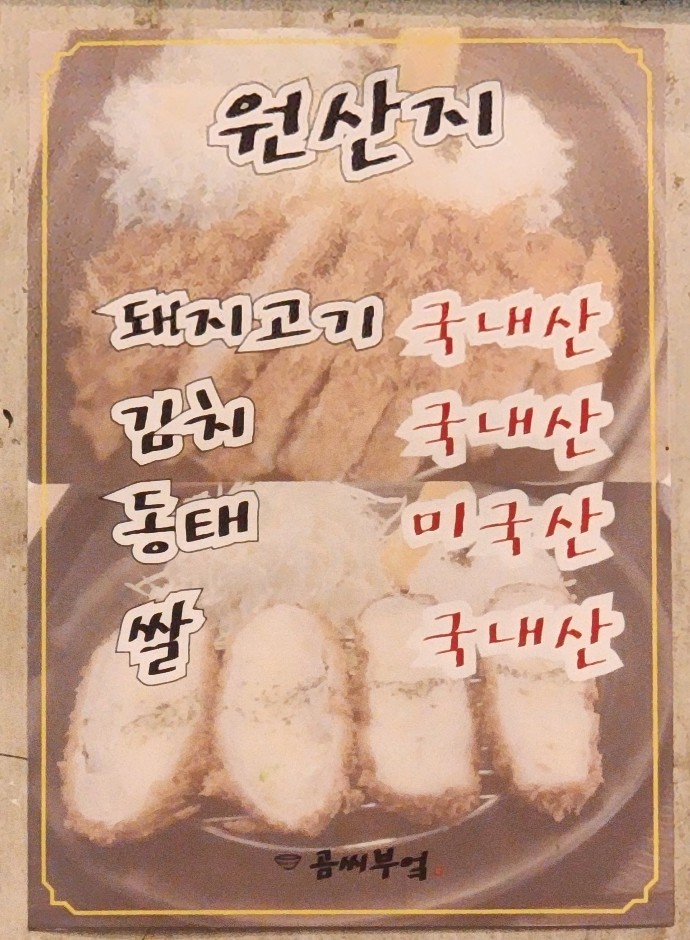 원산지
돼지고기 국내산
김치 국내산
동태 미국산
쌀 국내산
곰씨부엌